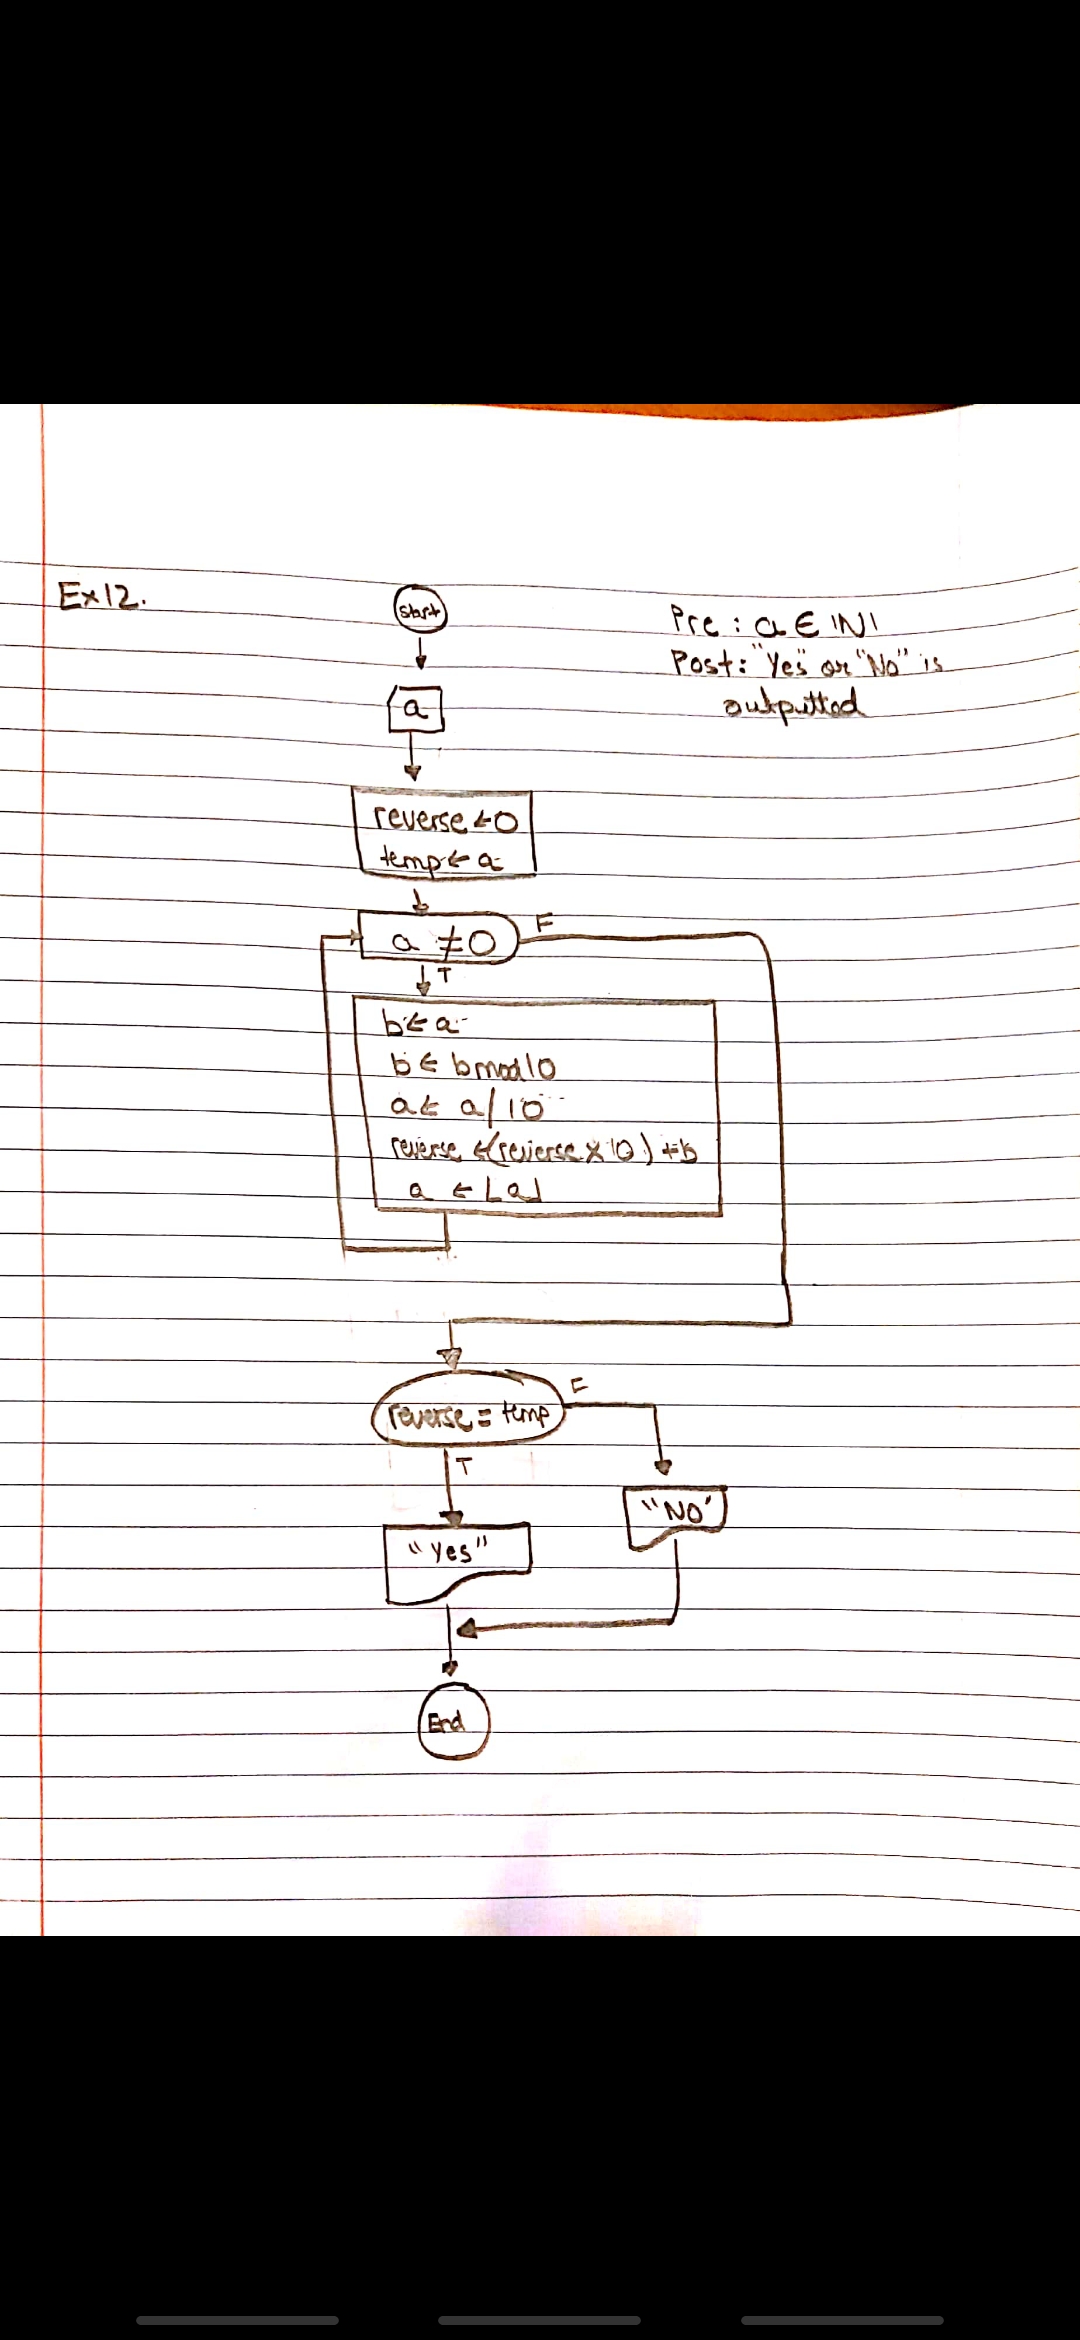 Ex12.
Start
Pre : a ∈ ℕ
Post: "Yes" or "No" is
outputted
a
reverse ← 0
temp ← a
a ≠ 0
F
T
b ← a
b ← b mod 10
a ← a / 10
reverse ← (reverse × 10) + b
a ← ⌊a⌋
reverse = temp
F
T
"NO"
"Yes"
End